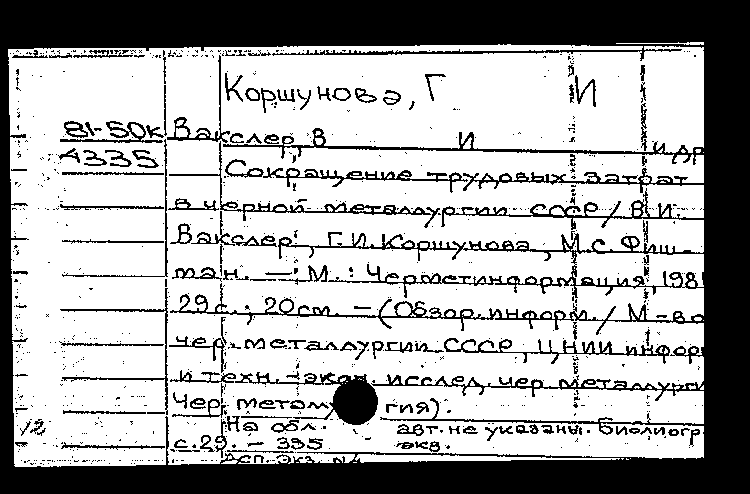 Коршунова, Г И
81-50к Вакслер, В И и др
4335 Сокращение трудовых затрат
в черной металлургии СССР / В.И.
Вакслер, Г.И. Коршунова, М.С. Фиш-
ман. — М. : Черметинформация, 1981
29 с. ; 20 см. — (Обзор. информ. / М-во
чер. металлургии СССР, ЦНИИ информ
и техн.-экон. исслед. чер металлурги
Чер метал гия).
На обл. авт. не указаны. Библиогр
12 с. 29. — 335 экз.